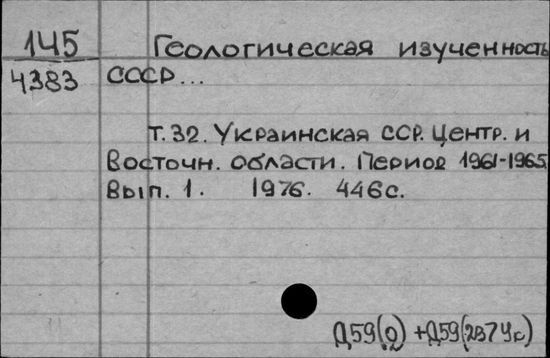 145 Геологическая изученность
4383 СССР...
т. 32. Украинская ССР. Центр. и
Восточн. области. Период 1961-1965
Вып. 1. 1976. 446с.
Д59(2) + Д59(2В74с)